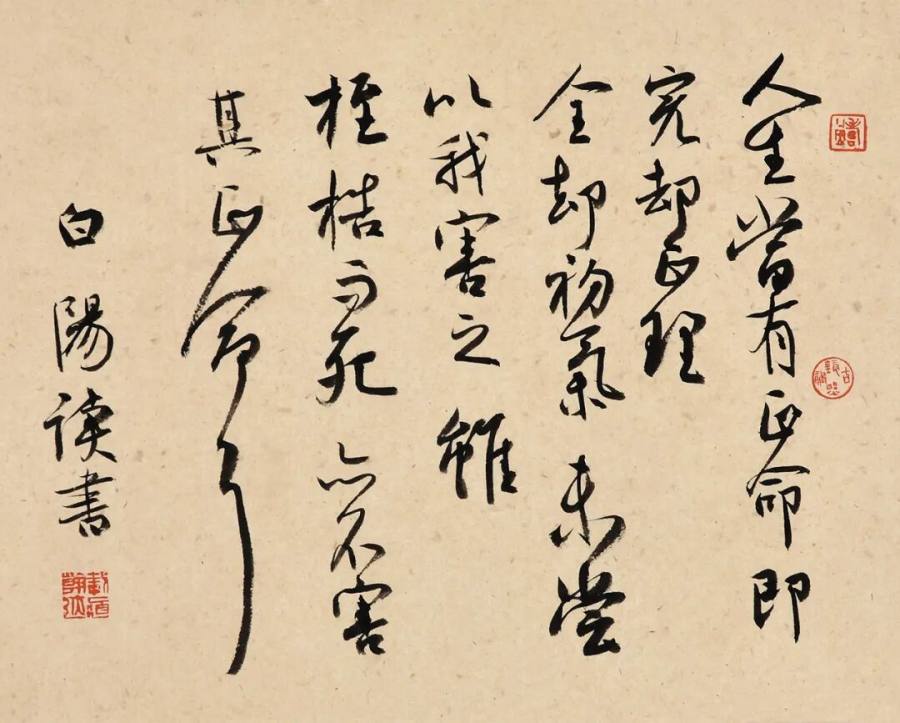 人生當有正命即
完却正理
全却初氣未嘗
以我害之雖
桎梏而死亦不害
其正命了
白陽读書